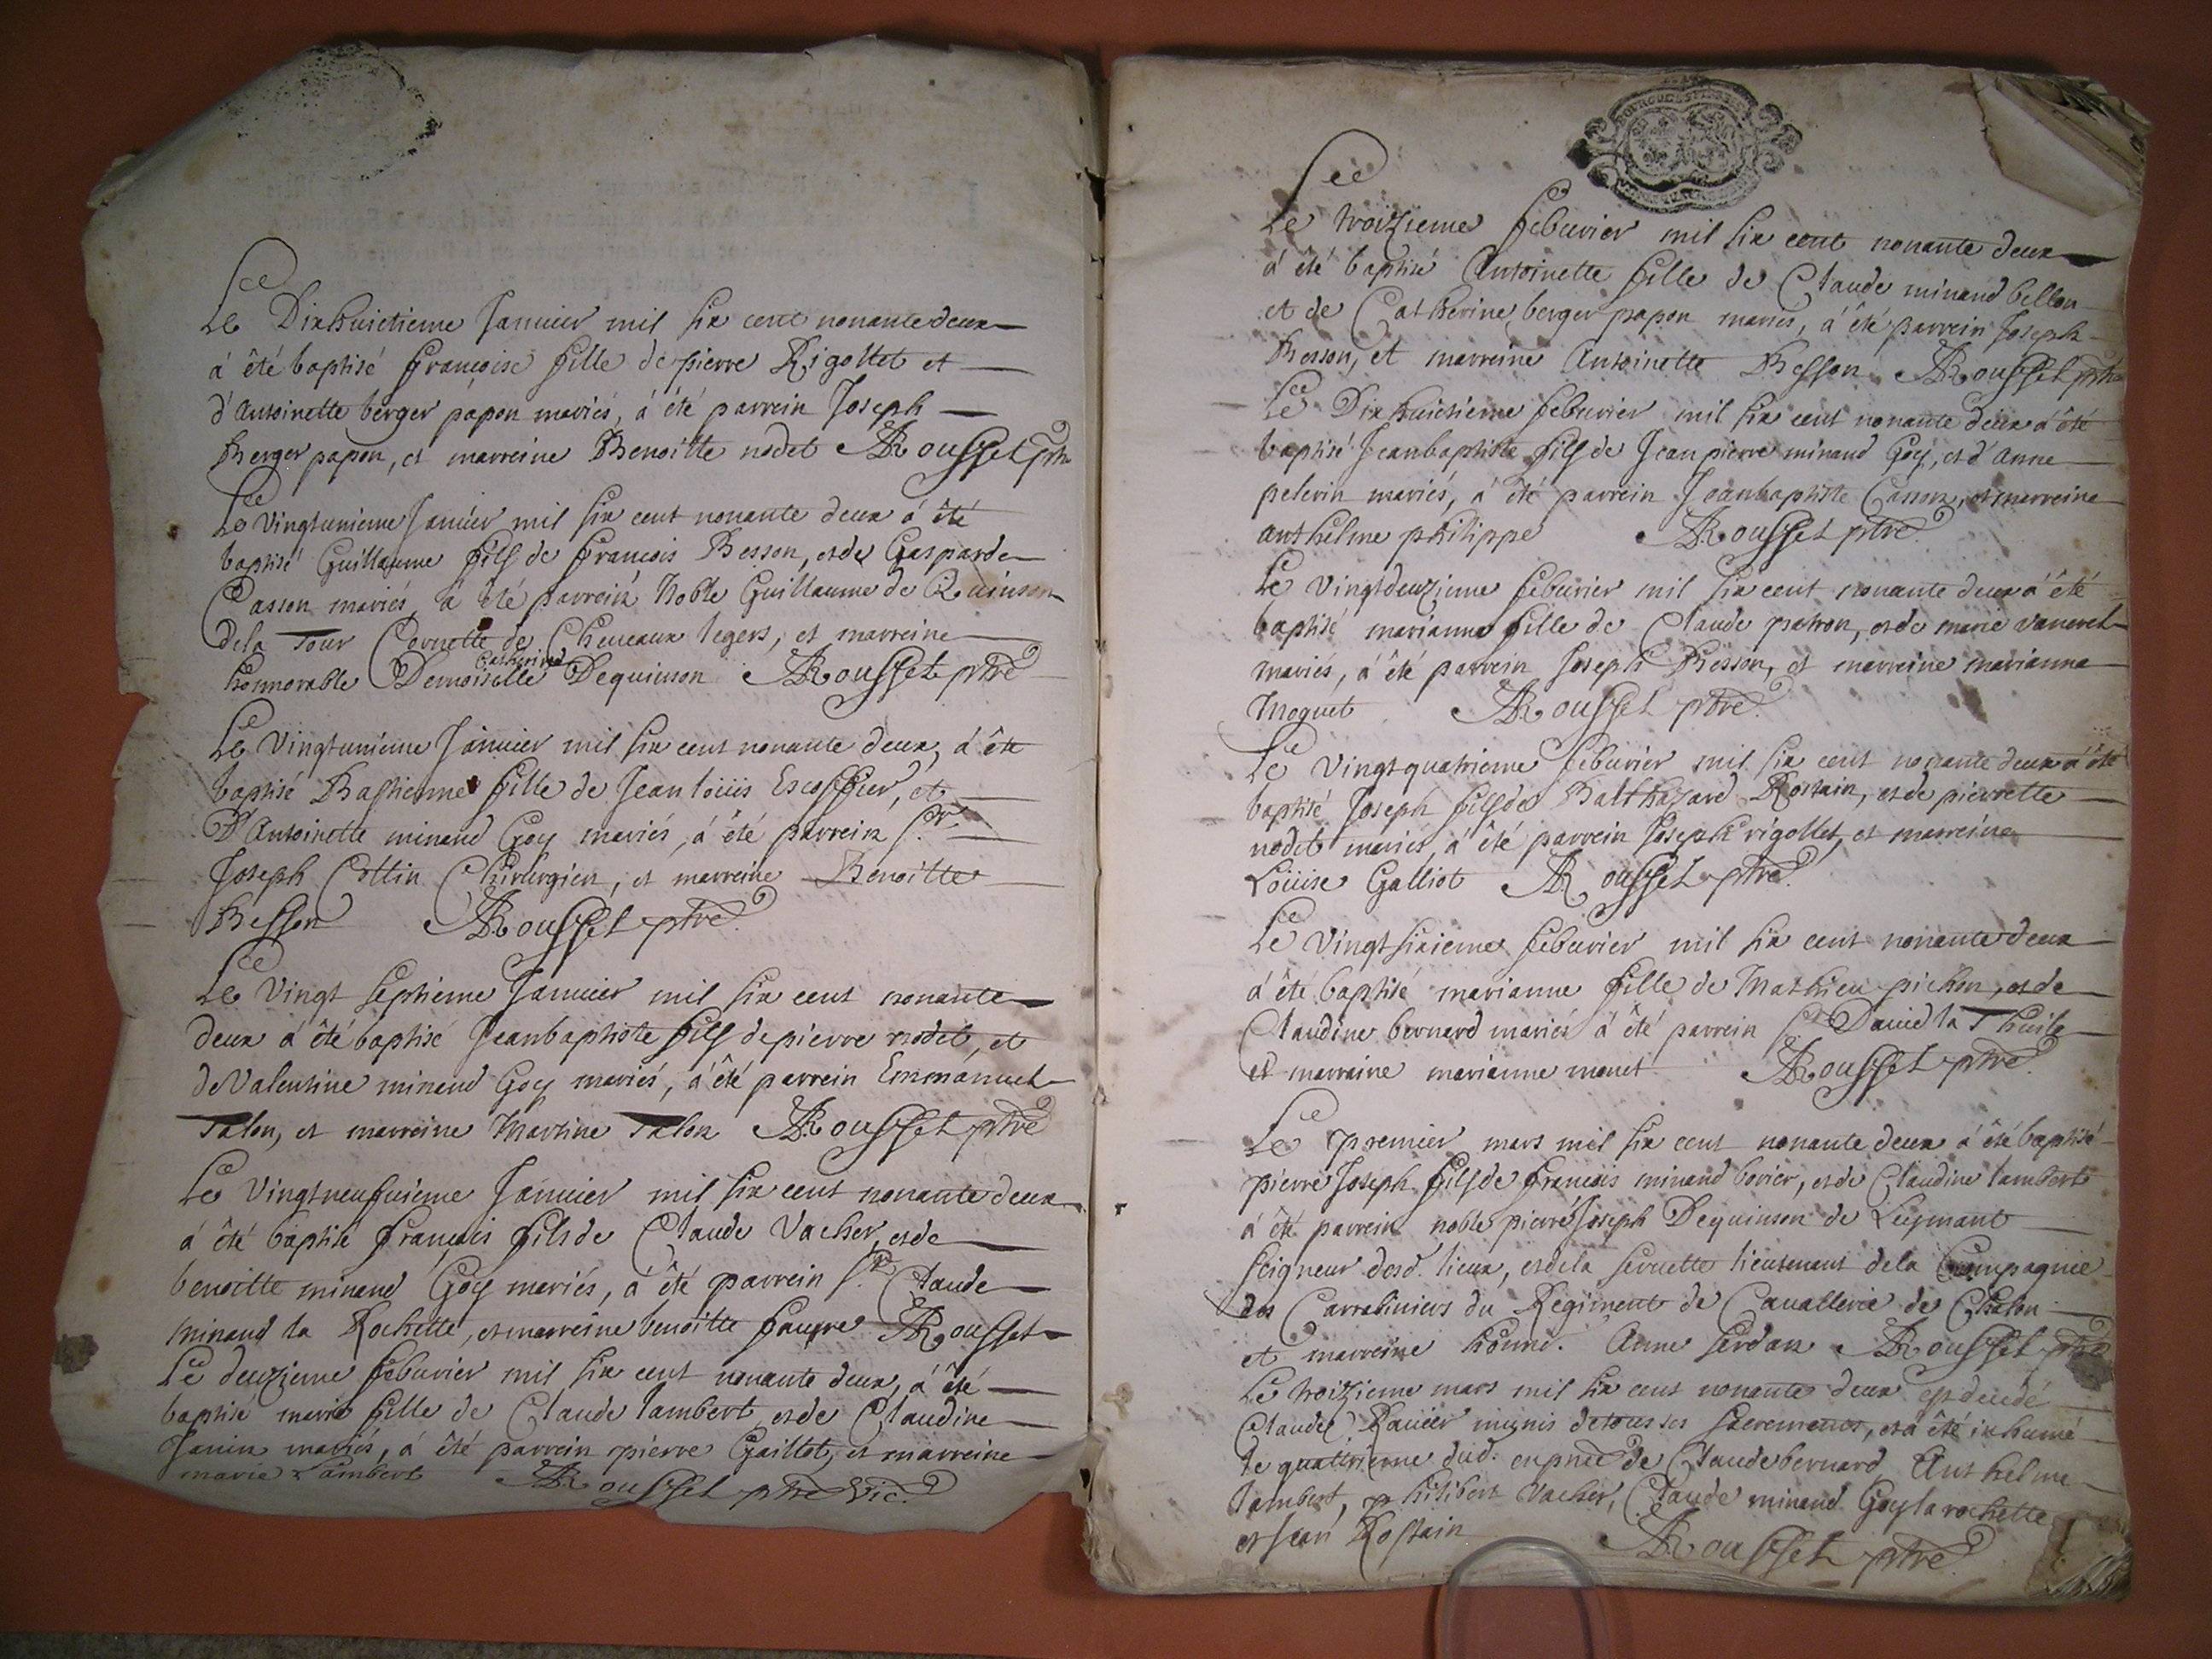 Le Dixhuictieme Januier mil six cent nonante deux
à été baptisé françoise fille de pierre Rigollet et
d'Antoinette berger papon mariés, à été parrein Joseph
Berger papon, et marreine Benoitte nodet Rousset ptre
Le Vingtunieme Januier mil six cent nonante deux à été
baptisé Guillaume fils de francois Besson, et de Gasparde
Casson mariés, à été parrein Noble Guillaume de Quinson
dela Tour Cornette de Cheueaux legers, et marreine
honnorable Demoiselle Catherine Dequinson Rousset ptre
Le Vingtunieme Januier mil six cent nonante deux, à été
baptisé Bastienne fille de Jean loüis Escoffier, et
D'Antoinette minand Goy mariés, à été parrein Sr.
Joseph Cottin Chirurgien, et marreine Benoitte
Besson Rousset ptre
Le Vingt septieme Januier mil six cent nonante
deux à été baptisé Jeanbaptiste fils de pierre nodet, et
de Valentine minand Goy mariés, à été parrein Emmanuel
Talon, et marreine Martine Talon Rousset ptre
Le Vingtneufuieme Januier mil six cent nonante deux
à été baptisé francois fils de Claude Vacher, et de
benoitte minand Goy mariés, à été parrein Sr. Claude
minand la Rochette, et marreine benoitte faupre Rousset
Le deuzieme feburier mil six cent nonante deux, à été
baptisé marie fille de Claude lambert, et de Claudine
Janin mariés, à été parrein pierre Gaillot, et marreine
marie Lambert Rousset ptre Vic.
Le troizieme feburier mil six cent nonante deux
à été baptisé Antoinette fille de Claude minand bellon
et de Catherine berger papon mariés, à été parrein Joseph
Besson, et marreine Antoinette Besson Rousset ptre
Le Dixhuictieme feburier mil six cent nonante deux à été
baptisé Jeanbaptiste fils de Jean pierre minand Goy, et d'Anne
pelerin mariés, à été parrein Jeanbaptiste Casson, et marreine
anthelme philippe Rousset ptre
Le Vingtdeuzieme feburier mil six cent nonante deux à été
baptisé marianne fille de Claude patron, et de marie vaneret
mariés, à été parrein Joseph Besson, et marreine marianne
Moquet Rousset ptre
Le Vingtquatrieme feburier mil six cent nonante deux à été
baptisé Joseph fils de Balthazard Rostain, et de pierrette
nodet mariés, à été parrein Joseph rigollet, et marreine
Loüise Galliot Rousset ptre
Le Vingtsixieme feburier mil six cent nonante deux
à été baptisé marianne fille de Mathieu pichon, et de
Claudine bernard mariés à été parrein Sr. Dauid la Thuile
et marraine marianne monet Rousset ptre
Le premier mars mil six cent nonante deux à été baptisé
pierre Joseph fils de francois minand borier, et de Claudine lambert
à été parrein noble pierre Joseph Dequinson de Leymant
seigneur desd. lieux, et dela seruette lieutenant dela Compagnie
des Carrabiniers du Regiment de Cauallerie de Chalon
et marreine honne. Anne serdan Rousset ptre
Le troizieme mars mil six cent nonante deux est decedé
Claude munis detous ses sacrements, et à été inhumé
le quattrieme dud. en pnce de Claude bernard Anthelme
lambert, philibert Vacher, Claude minand Goy la rochette
et Jean Rostain Rousset ptre